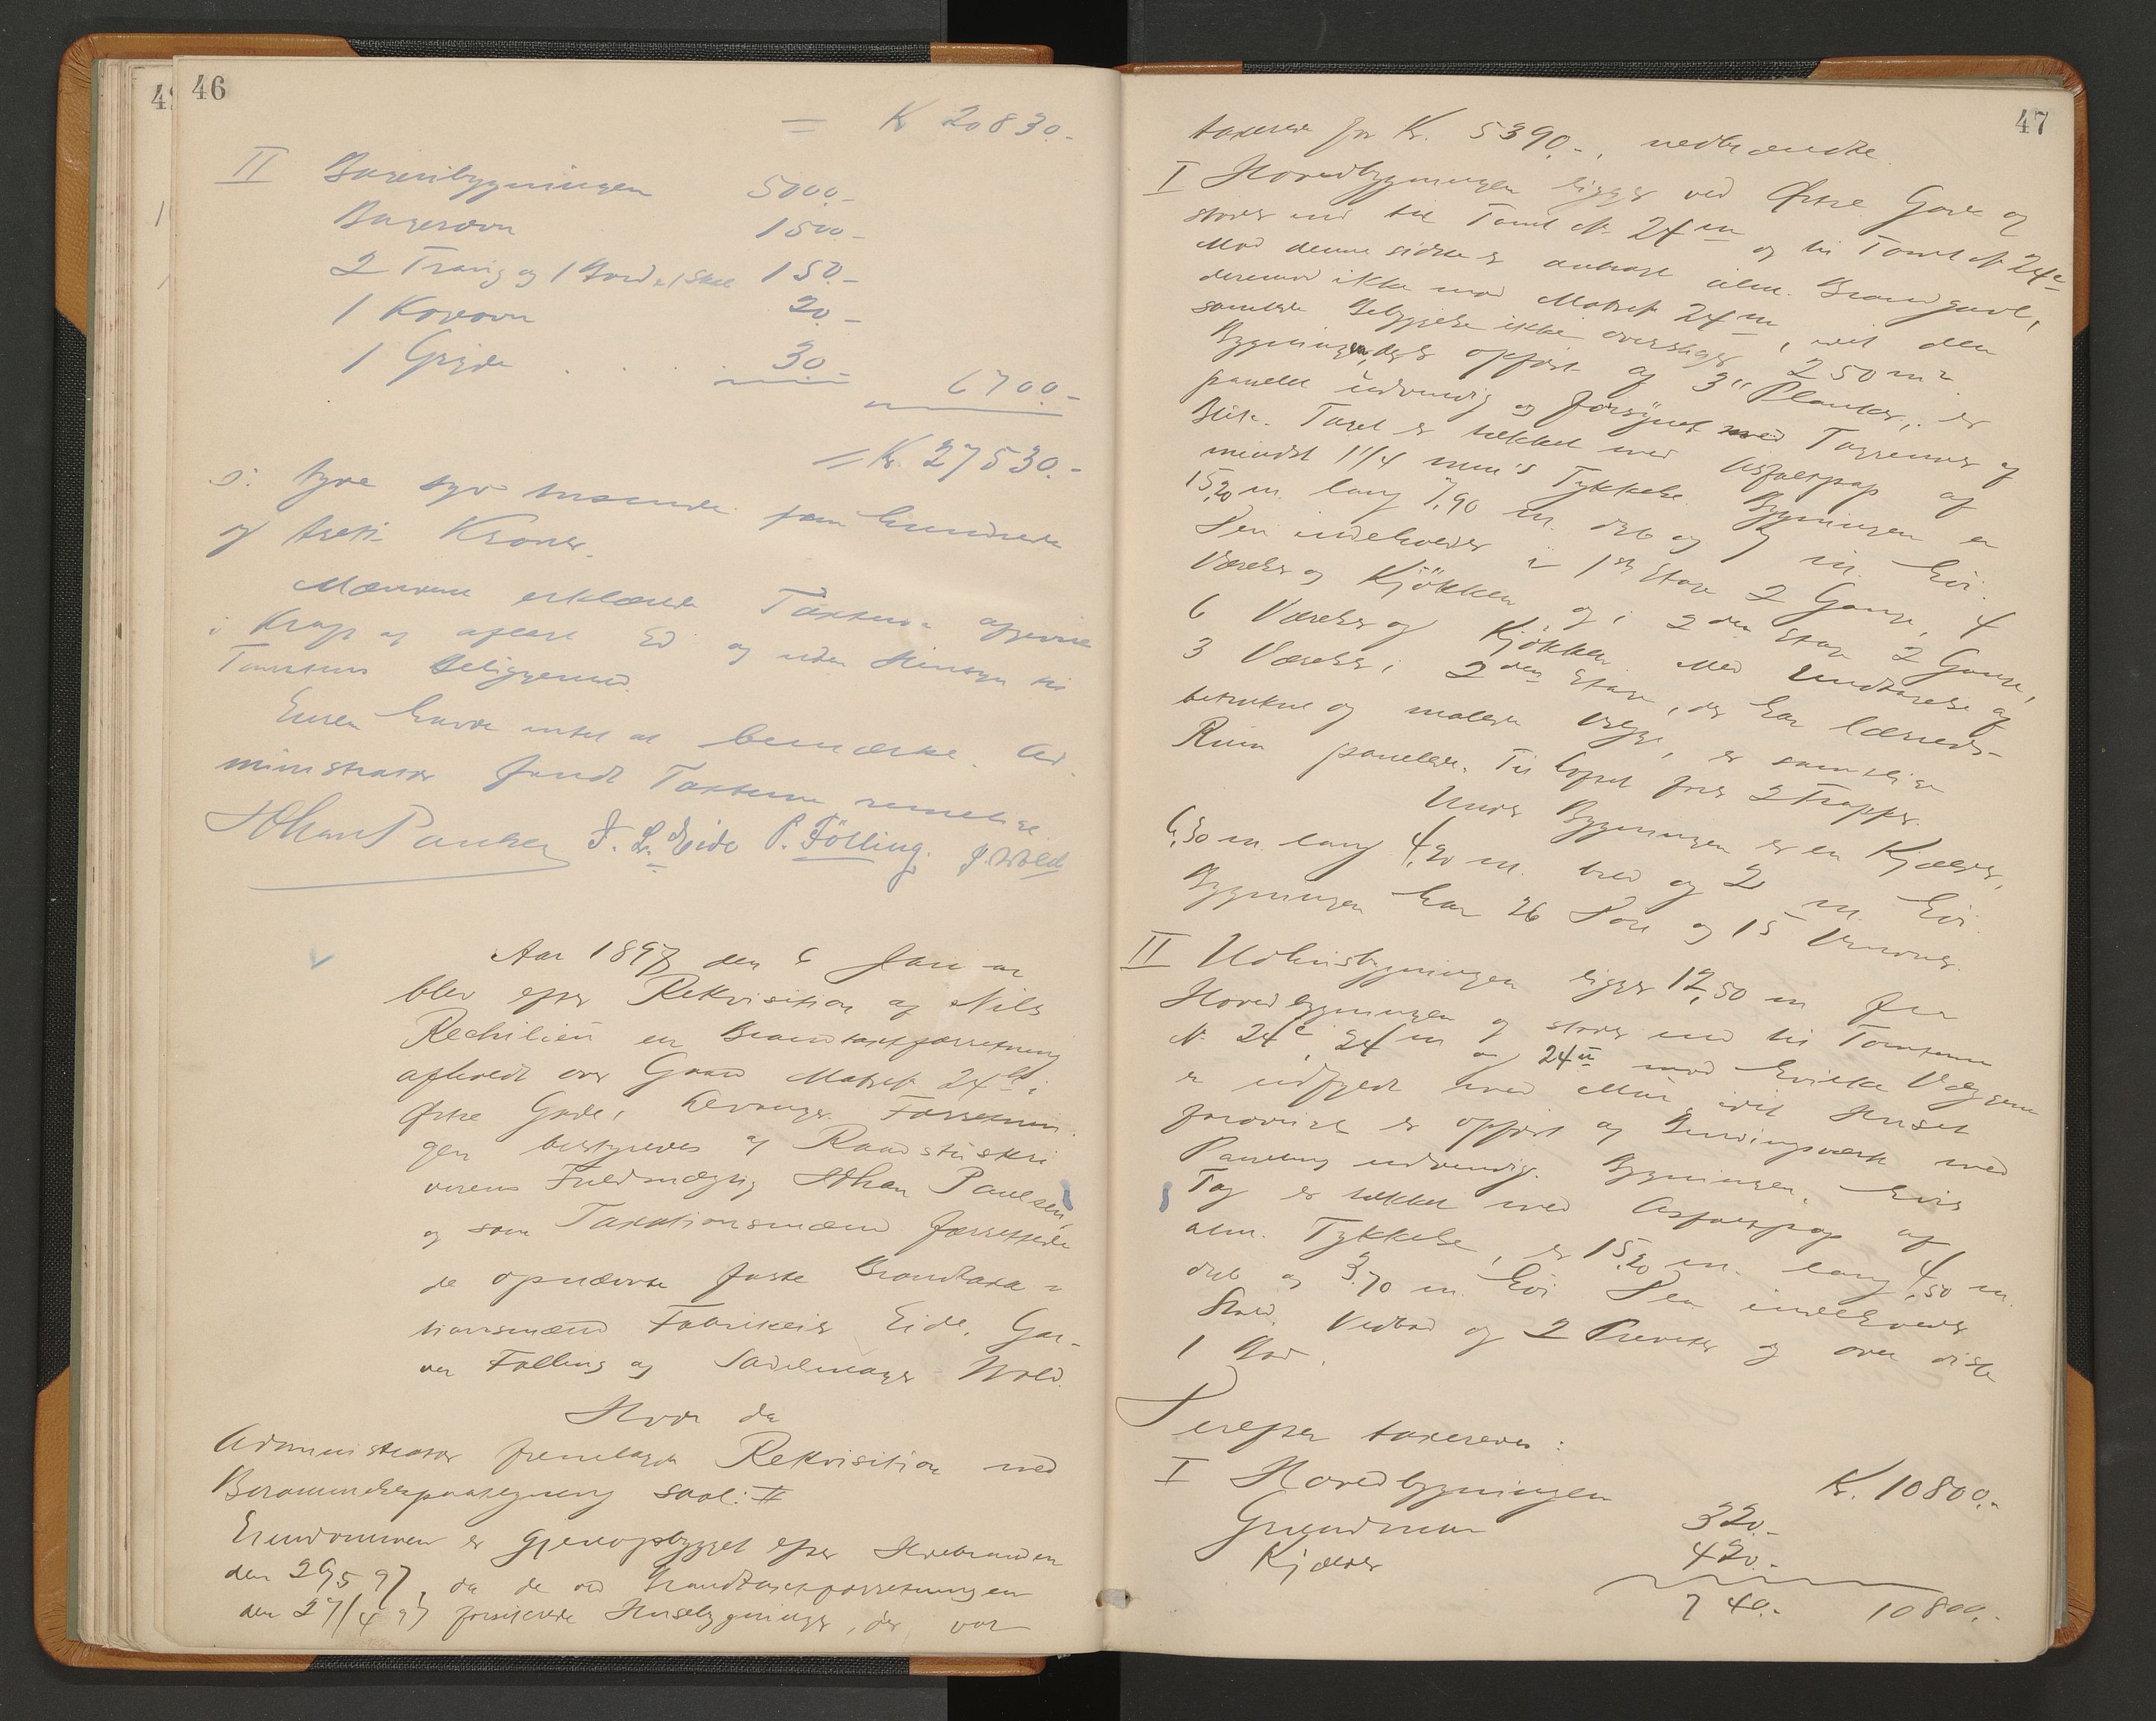 46
= Kr 20830.-
II Bageribygningen 5000.-
Bagerovn 1500.-
2 Traug og 1 Bord 150.-
1 Kogeovn 20.-
1 Gryde . . . 30.- 6700.-
= Kr. 27530.-
ɔ: tyve syv tusende fem hundrede
og treti Kroner.
Mændene erklærede Taxterne afgivne
i Kraft af aflagt Ed og uden Hensyn til
Tomternes Beliggenhed.
Ingen havde intet at bemærke. Ad-
ministrator fandt Taxterne rimelige.
Johan Paulsen F. L. Eide P. Fölling. J. Wold
Aar 1897 den 6 Januar
blev efter Rekvisition af Nils
Rechilien en Brandtaxtforretning
afholdt over Gaard Matrik 24 i
Østre Gade, Levanger. Forretnin-
gen bestyredes af Raadstuskri
verens Fuldmægtig Johan Paulsen,
og som Taxationsmænd forrettede
de opnævnte faste Brandtaxa-
tionsmænd Fabrikeier Eide, Gar-
ver Følling og Sadelmager Wold.
Hvor da
Administrator fremlagde Rekvisition med
Berammelsespaategning saal: II
Eiendommen er gjenopbygget efter Ildebranden
den 29/5 97, da de ved Brandtaxtforretningen
den 27/4 97 forsikrede Husebygninger, der var
47
taxerede for Kr. 5390.-, nedbrændte.
I Hovedbygningen ligger ved Østre Gade og
støder ind til Tomt № 24m og til Tomt № 24c
Mod denne sidste er anbragt alm. Brandgavl,
derimod ikke mod Matrik 24m, idet den
samlede Bebyggelse ikke overstiger 250 m2
Bygningen, der er opført af 3" Planker, er
panelet udvendig og forsynet med Tagrender af
Blik. Taget er tækket med Asfaltpap af
mindst 1 1/4 mm's Tykkelse. Bygningen er
15,20 m. lang 7,90 m. dyb og 7 m. høi.
Den indeholder i 1ste Etage 2 Gange, 4
Værelser og Kjökken og i 2den Etage 2 Gange,
6 Værelser og Kjökken. Med Undtagelse af
3 Værelser i 2den Etage, der har lærreds-
betrukne og malede Vægge, er samtlige
Rum panelede. Til Loftet fører 2 Trapper.
Under Bygningen er en Kjælder,
6,30 m. lang 4,20 m. bred og 2 m. høi.
Bygningen har 26 Døre og 15 Vinduer.
II Udhusbygningen ligger 12,50 m fra
Hovedbygningen og støder ind til Tomterne
№ 24c, 24m og 24n mod hvilke Væggene
er udfyldt med Mur idet Huset
forøvrigt er opført af Bindingsværk med
Paneling udvendig. Bygningen, hvis
Tag er tækket med Asfaltpap af
alm. Tykkelse, er 15,20 m. lang 4,50 m.
dyb og 3,70 m. høi Den indeholder
Stald, Vedbod og 2 Priveter og over disse
1 Bod.
Derefter taxeredes:
I Hovedbygningen Kr. 10800.-
Grundmur 320.-
Kjælder 420.-
740.- 10800.-